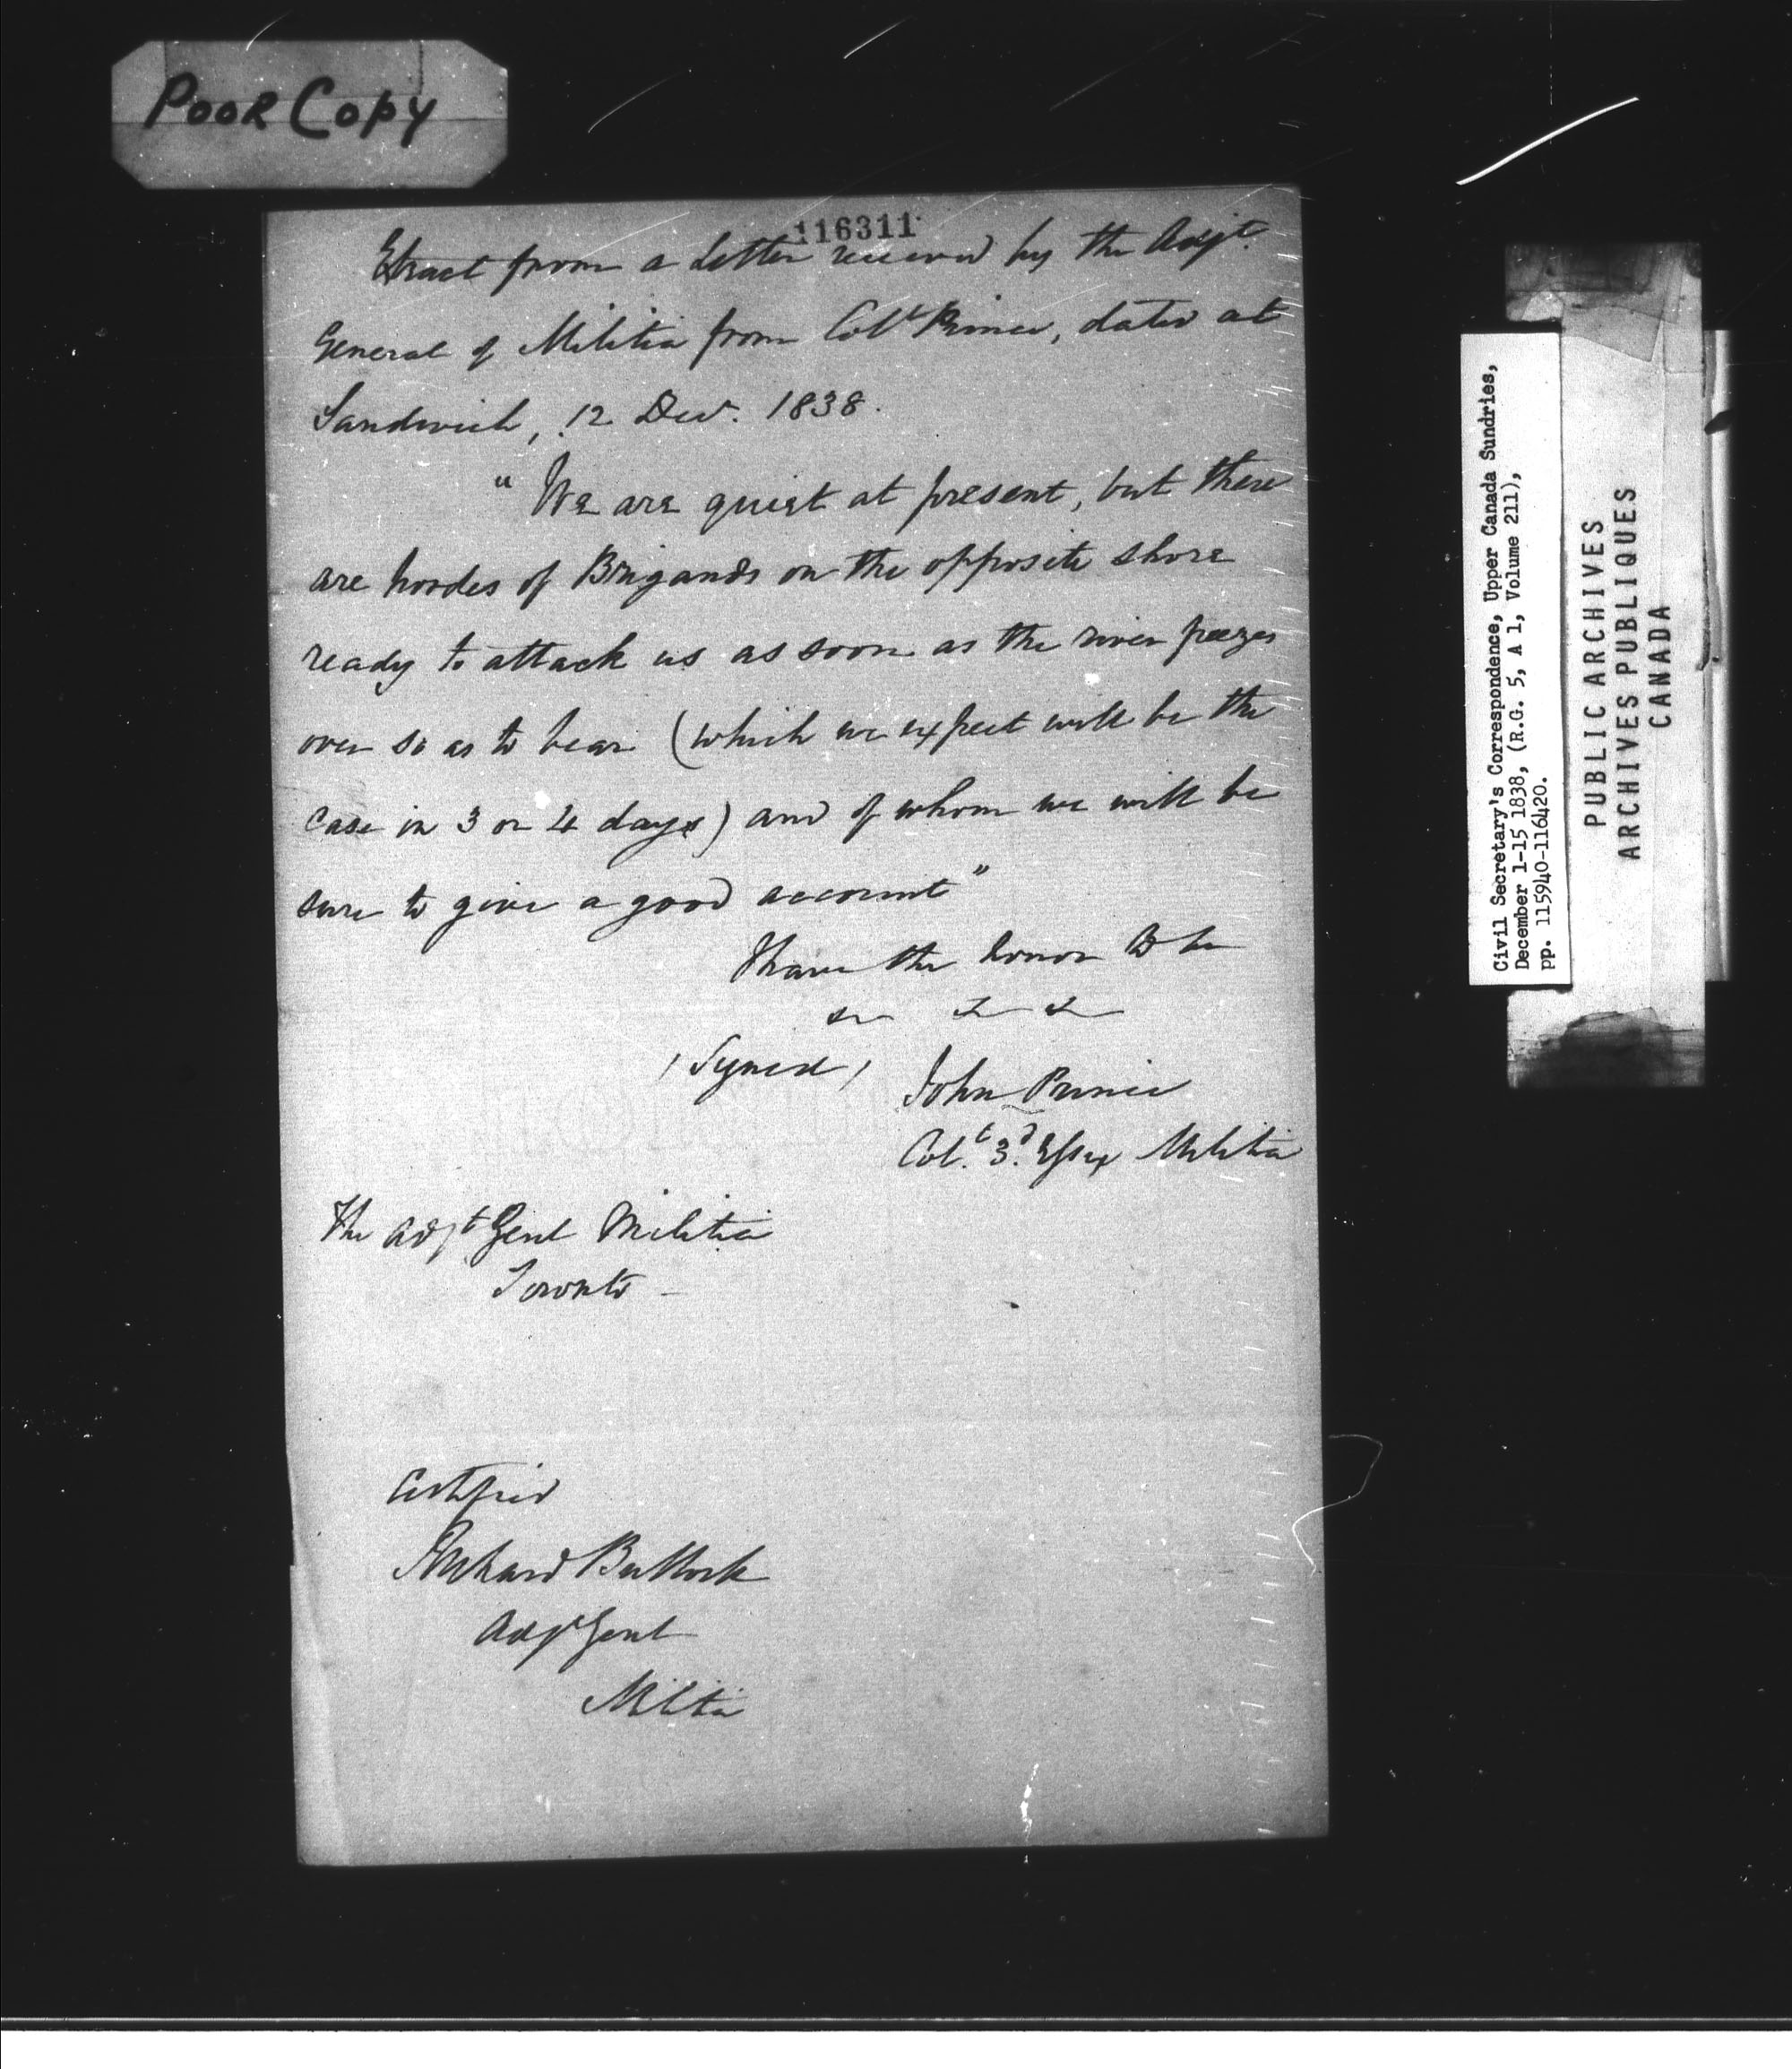 POOR COPY
116311
Extract from a Letter received by the Adjt.
General of Militia from Colt Prince, dated at
Sandwich, 12 Decr. 1838.
"We are quiet at present, but there
are hordes of Brigands on the opposite shore
ready to attack us as soon as the river freezes
over so as to bear (which we expect will be the
case in 3 or 4 days) and of whom we will be
sure to give a good account"
I have the honor to be
&c &c &c
(Signed) John Prince
Colt. 3d. Essex Militia
The Adjt Genl Militia
Toronto
Certified
Richard Bullock
Adjt Genl
Militia
Civil Secretary's Correspondence, Upper Canada Sundries,
December 1-15 1838, (R.G. 5, A 1, Volume 211),
pp. 115940-116420.
PUBLIC ARCHIVES
ARCHIVES PUBLIQUES
CANADA